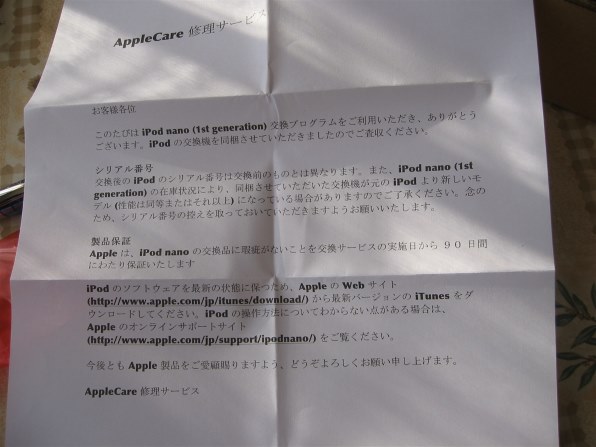 AppleCare 修理サービス
お客様各位
このたびは iPod nano (1st generation) 交換プログラムをご利用いただき、ありがとう
ございます。iPod の交換機を同梱させていただきましたのでご査収ください。
シリアル番号
交換後の iPod のシリアル番号は交換前のものとは異なります。また、iPod nano (1st
generation) の在庫状況により、同梱させていただいた交換機が元の iPod より新しいモ
デル (性能は同等またはそれ以上) になっている場合がありますのでご了承ください。念の
ため、シリアル番号の控えを取っておいていただきますようお願いいたします。
製品保証
Apple は、iPod nano の交換品に瑕疵がないことを交換サービスの実施日から 90 日間
にわたり保証いたします
iPod のソフトウェアを最新の状態に保つため、Apple の Web サイト
(http://www.apple.com/jp/itunes/download/) から最新バージョンの iTunes をダ
ウンロードしてください。iPod の操作方法についてわからない点がある場合は、
Apple のオンラインサポートサイト
(http://www.apple.com/jp/support/ipodnano/) をご覧ください。
今後とも Apple 製品をご愛顧賜りますよう、どうぞよろしくお願い申し上げます。
AppleCare 修理サービス